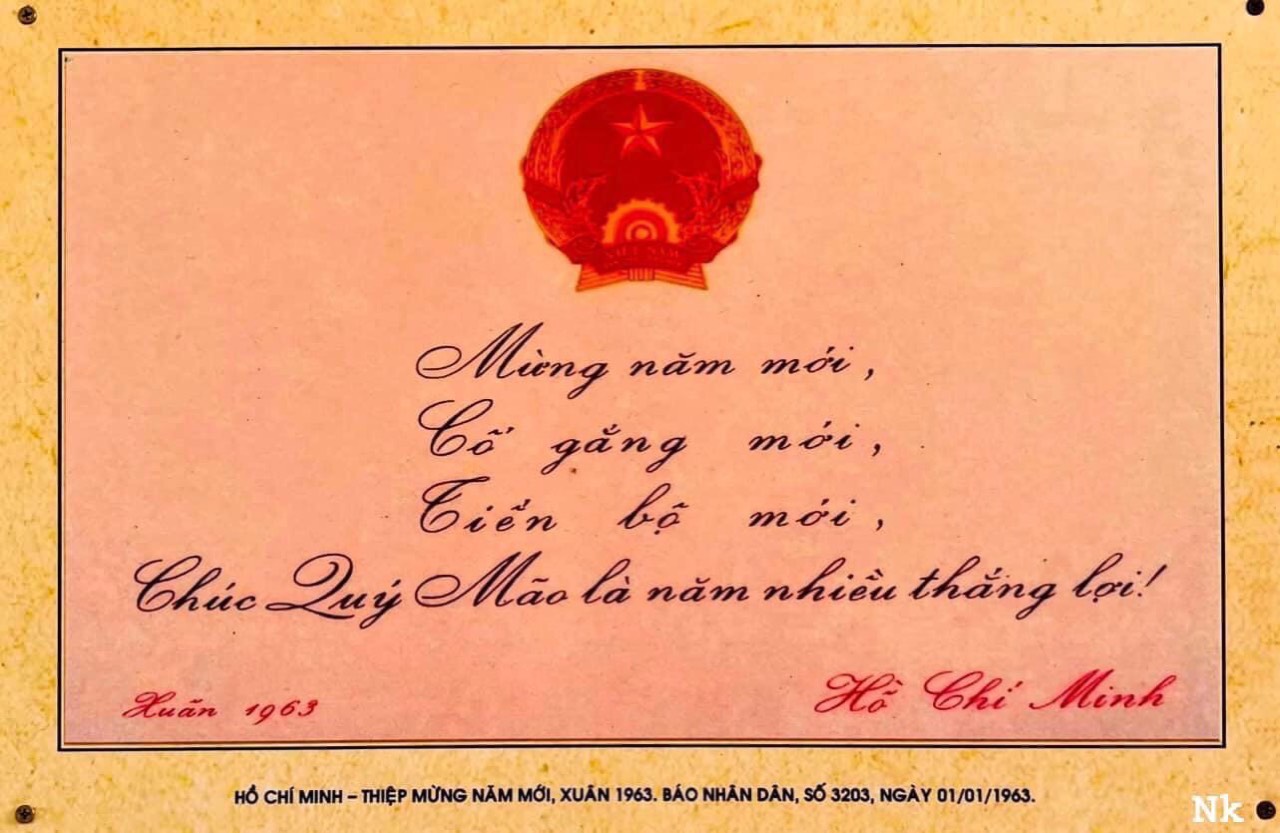 Mừng năm mới,
Cố gắng mới,
Tiến bộ mới,
Chúc Quý Mão là năm nhiều thắng lợi!
Xuân 1963
Hồ Chí Minh
HỒ CHÍ MINH – THIỆP MỪNG NĂM MỚI, XUÂN 1963. BÁO NHÂN DÂN, SỐ 3203, NGÀY 01/01/1963.
Nk